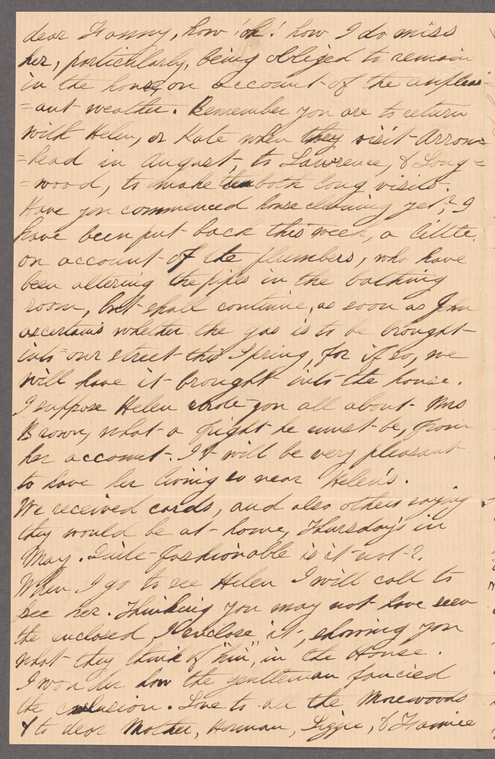 dear Fanny, how "oh"! how I do miss
her, particularly, being obliged to remain
in the house on account of the unpleas-
=ant weather. Remember you are to return
with Helen, or Kate when they visit Arrow=
=head in August - to Lawrence, & Long=
=wood, to make both long visits.
Have you commenced housecleaning yet? I
have been put back this week, a little,
on account of the plumbers, who have
been altering the pipes in the bathing
room, but shall continue, as soon as John
ascertains whether the gas is to be brought
into our street this Spring, for if so, we
will have it brought into the house.
I suppose Helen wrote you all about Mrs
Brown, what a fright he must be, from
her account. It will be very pleasant
to have her living so near Helen's.
We received cards, and also others saying
they would be at home, Thursday's in
May. Quite fashionable is it not?
When I go to see Helen I will call to
see her. Thinking you may not have seen
the enclosed, I enclose it, showing you
what they think of "him", in the House.
I wonder how the gentleman fancied
the allusion. Love to all the Morewoods
& to dear Mother, Herman, Lizzie, & Fannie